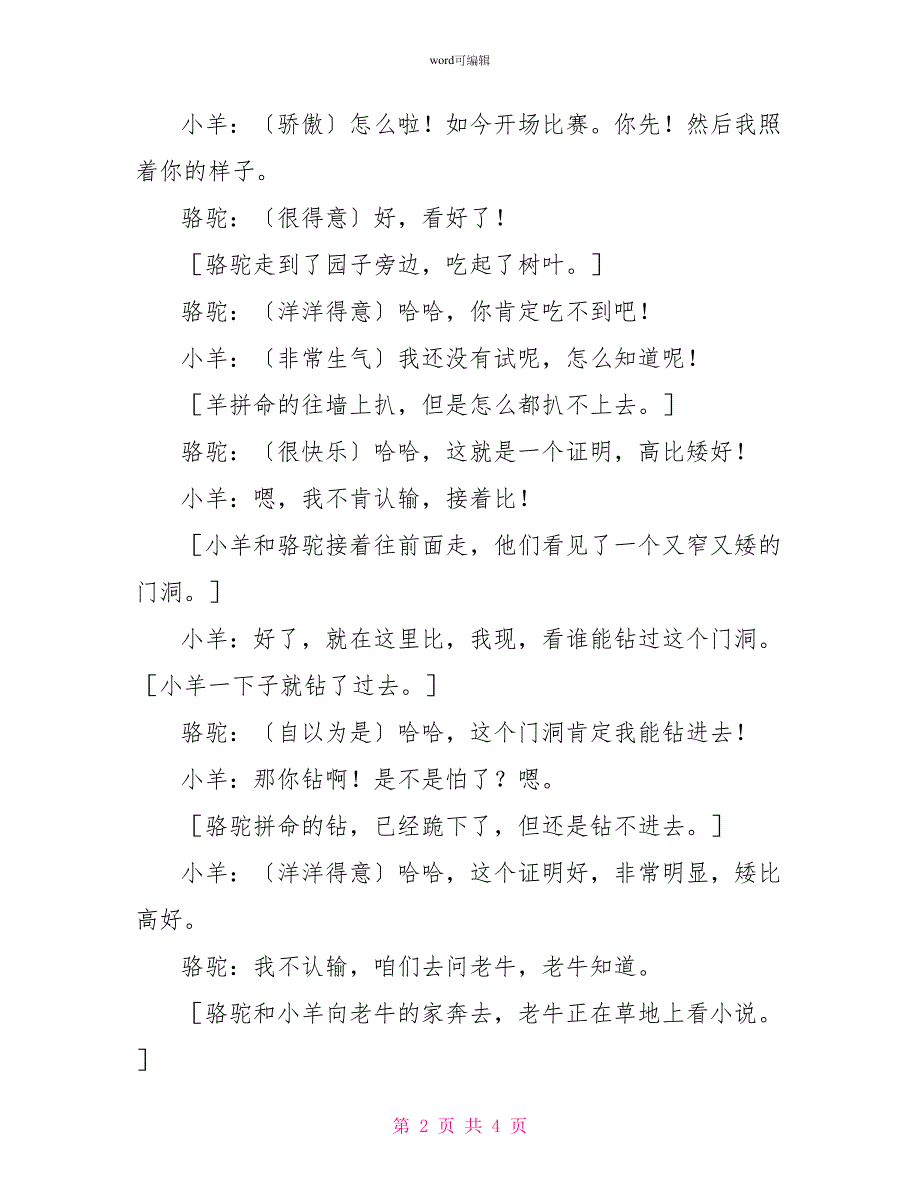 word可编辑
小羊：〔骄傲〕怎么啦！如今开场比赛。你先！然后我照
着你的样子。
骆驼：〔很得意〕好，看好了！
［骆驼走到了园子旁边，吃起了树叶。］
骆驼：〔洋洋得意〕哈哈，你肯定吃不到吧！
小羊：〔非常生气〕我还没有试呢，怎么知道呢！
［羊拼命的往墙上扒，但是怎么都扒不上去。］
骆驼：〔很快乐〕哈哈，这就是一个证明，高比矮好！
小羊：嗯，我不肯认输，接着比！
［小羊和骆驼接着往前面走，他们看见了一个又窄又矮的
门洞。］
小羊：好了，就在这里比，我现，看谁能钻过这个门洞。
［小羊一下子就钻了过去。］
骆驼：〔自以为是〕哈哈，这个门洞肯定我能钻进去！
小羊：那你钻啊！是不是怕了？嗯。
［骆驼拼命的钻，已经跪下了，但还是钻不进去。］
小羊：〔洋洋得意〕哈哈，这个证明好，非常明显，矮比
高好。
骆驼：我不认输，咱们去问老牛，老牛知道。
［骆驼和小羊向老牛的家奔去，老牛正在草地上看小说。
］
第 2 页 共 4 页